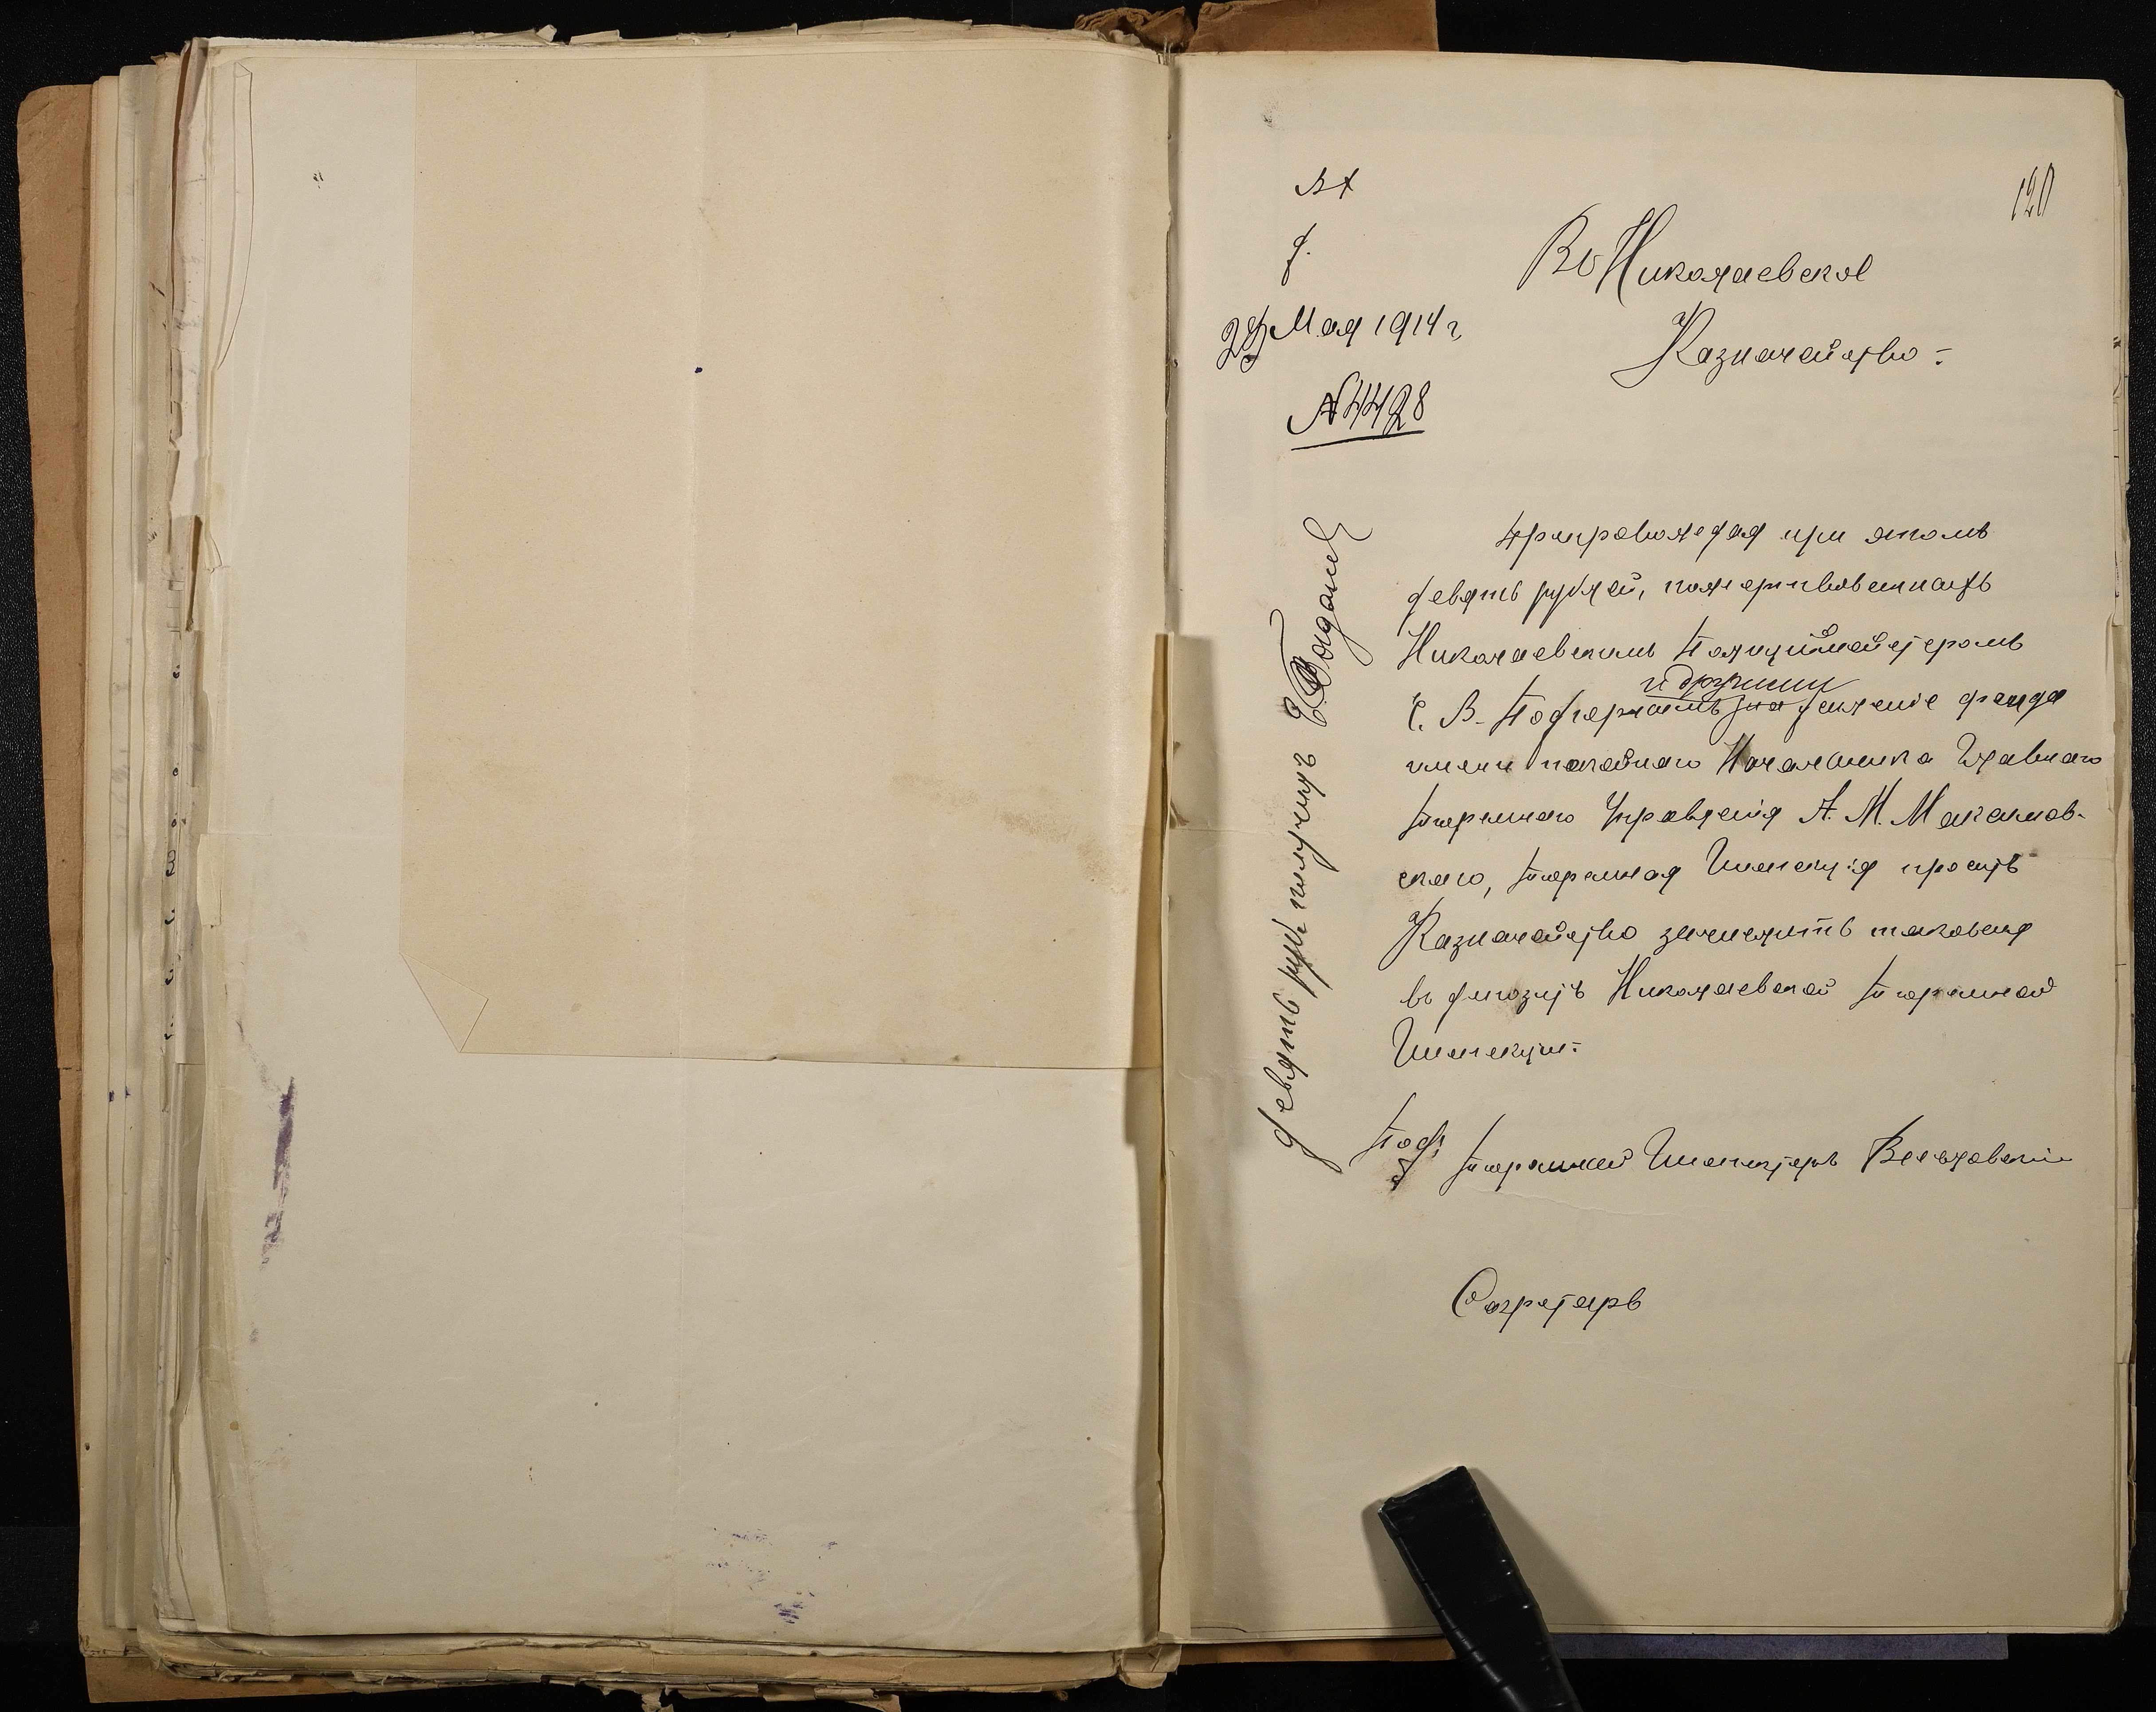 120
В. Х.
Д.
28 Мая 1914 г.
№ 4428
Въ Николаевское
Казначейство.
Препровождая при этомъ
девять рублей, пожертвованныхъ
Николаевскимъ Полицiймейстеромъ
и другими
С. В. на усиленіе фонда
имени покойнаго Начальника Главнаго
Тюремнаго Управленія А. М. Максимов-
скаго, Тюремная Инспекція проситъ
Казначейство зачислить таковыя
въ депозитъ Николаевской Тюремной
Инспекціи.
Подп. Тюремный Инспекторъ
Секретарь
Девять руб. получилъ